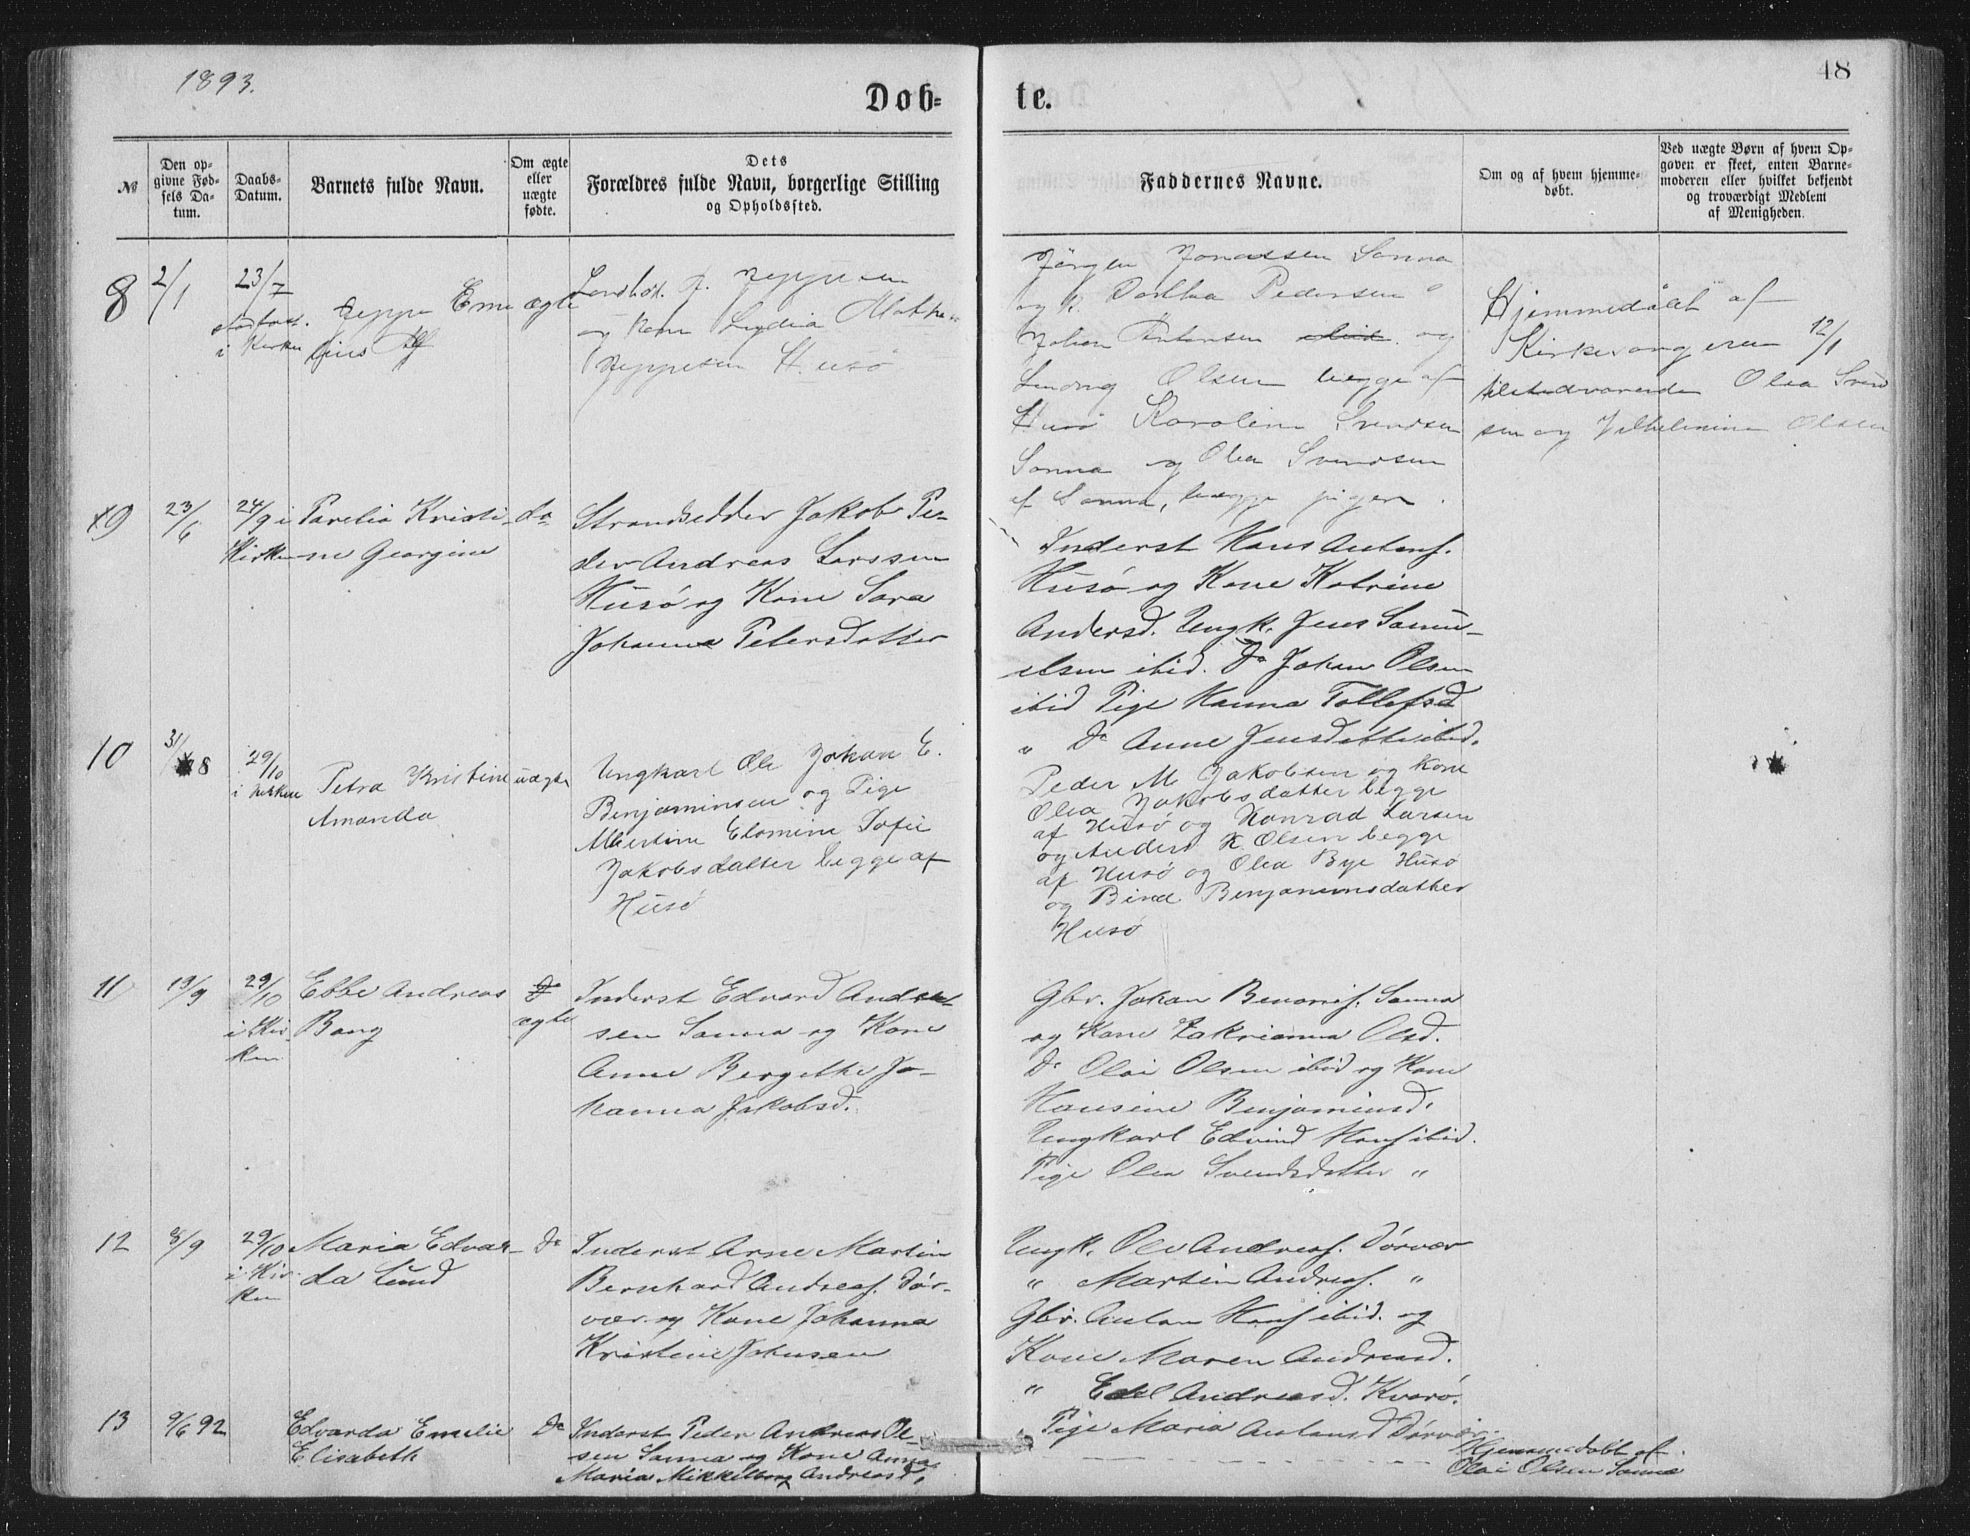 1893.
48
Døb-
te.
№
Den op-
givne Fød-
sels Da-
tum.
Daabs-
Datum.
Barnets fulde Navn.
Om ægte
eller
uægte
fødte.
Dets
Forældres fulde Navn, borgerlige Stilling
og Opholdssted.
Faddernes Navne.
Om og af hvem hjemme-
døbt.
Ved uægte Børn af hvem Op-
gaven er skeet, enten Barne-
moderen eller hvilket bekjendt
og troværdigt Medlem
af Menigheden.
8
2/1
23/7
i Kirken
Jeppe Eme
lius
ægte
Landhdl. J. Jeppesen
og Kone Lydia
Jeppesen Husø
Jörgen Jonassen Sanna
og Dorthea Pedersen "
Johan Antonsen og
Olsen begge af
Husø Karoline Svendsen
Sanna og Olea Svendsen
af Sanna, begge piger.
Hjemmedøbt af
Kirkesangeren 12/1
tilstedværende Olea Svend
sen og Vilhelmine Olsen
9
23/6
24/9 i
Kirken
Parelia Kristi-
ne Georgine
do
Strandsidder Jakob Pe-
der Andreas Larssen
Husø og Kone Sara
Johanna Petersdatter
Inderst Hans Antons.
Husø og Kone Katrine
Andersd. Ungk. Jens Samu-
elsen ibid. Do Johan Olsen
ibid Pige Hanna Tollefsd
" Do Anne Jensdatter ibid.
10
31/8
29/10
i Kirken
Petra Kristine
Amanda
uægte
Ungkarl Ole Johan E.
Benjaminsen og Pige
Albertine Elomine Sofie
Jakobsdatter begge af
Husø
Peder M. Jakobsen og Kone
Olea Jakobsdatter begge
af Husø og Konrad Larsen
og Anders K. Olsen begge
af Husø og Olea Bye Husø
og Bina Benjaminsdatter
Husø
11
19/9
29/10
i Kir-
ken
Ebbe Andreas
Bang
Do
ægte
Inderst Edvard Andrea-
sen Sanna og Kone
Anne Bergethe Jo-
hanna Jakobsd.
Gbr. Johan Benonis. Sanna
og Kone Zakrianna Olsd.
Do Olai Olsen ibid og Kone
Hansine Benjaminsd.
Ungkarl Edvind Hans ibid.
Pige Olea Svendsdatter "
12
8/9
29/10
i Kir-
ken
Maria Edvar-
da Lund
Do
Inderst Arne Martin
Bernhard Andreas. Dör-
vær og Kone Johanna
Kristine Johnsen
Ungk. Ole Andreas. Dörvær
" Martin Andreas. "
Gbr. Anton Hans ibid. og
Kone Maren Andreasd.
" Edel Andreasd. Kvarø.
" Pige Maria Antonsd Dörvær.
13
9/6 92
Edvarda Emelie
Elisabeth
Do
Inderst Peder Andreas Ol-
sen Sanna og Kone Anna
Maria Mikkelborg Andreasd.
Hjemmedøbt af
Olai Olsen Sanna